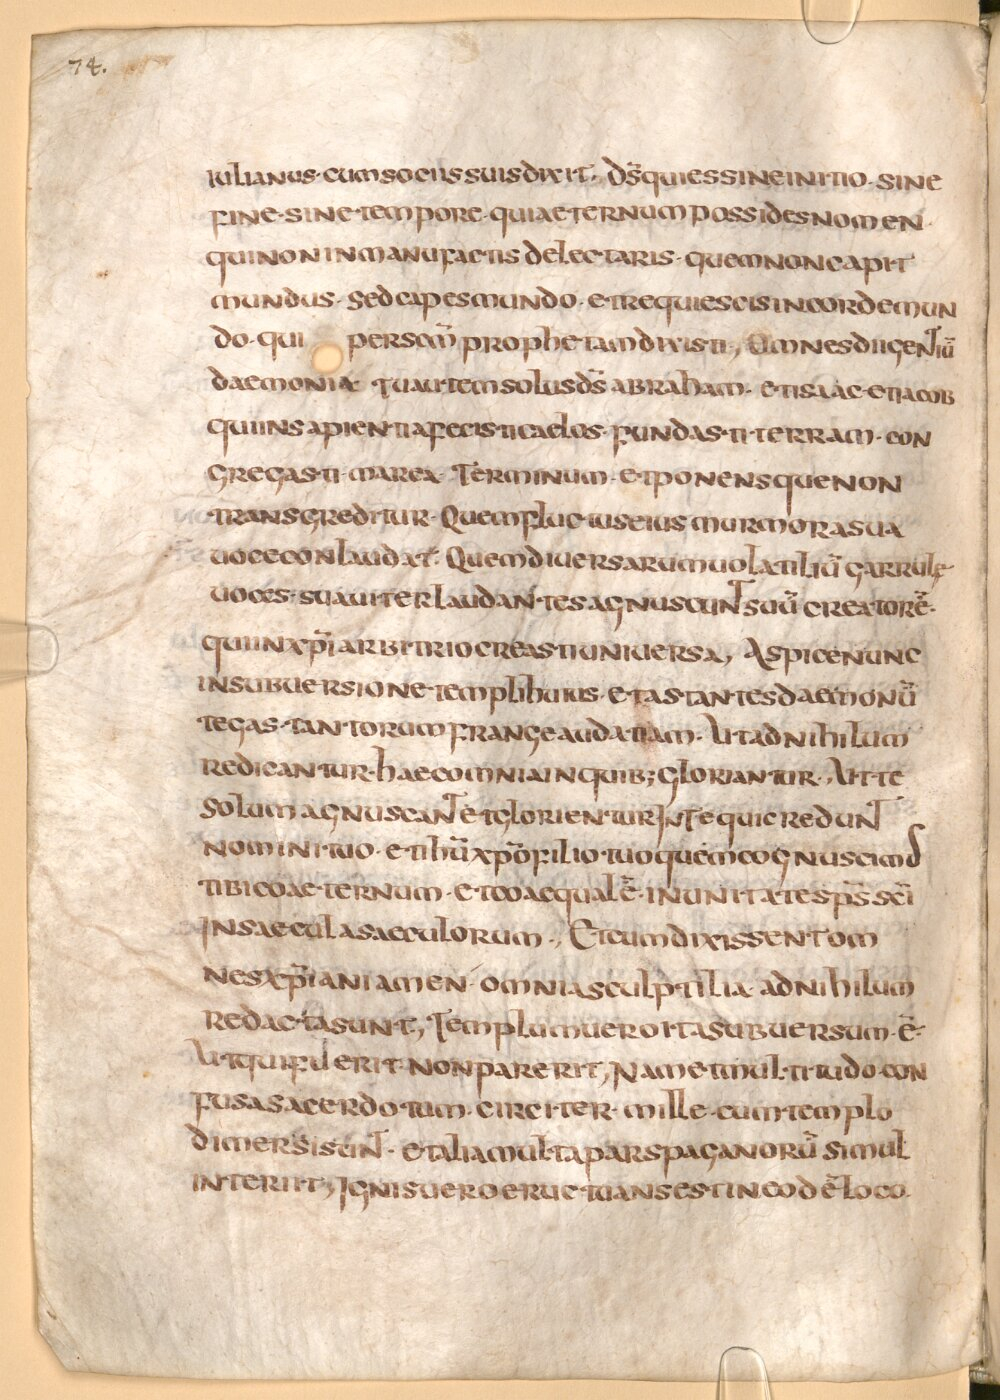 74.
iulianus· cum sociis suis dixit., d̄s qui es sine initio· sine
fine· sine tempore· qui aeternum possides nomen·
qui non in manufactis delectaris· quem non capit
mundus· sed capes mundo· et requiescis in corde mun
do· qui per scm̄ prophetam dixisti., Omnes dii gentiū
daemonia tu autem solus d̄s abraham· et isaac· et iacob
qui in sapientia fecisti caelos· fundasti terram· con
gregasti marea· Terminum· et ponens que non
transgreditur· Quem fluctus eius murmora sua
uoce conlaudat· Quem diuersarum uolatiliū garrule
uoces· suauiter laudantes agnuscunt suū creatorē·
qui in xp̄i arbitrio creasti uniuersa, Aspice nunc
in subuersione templi huius· et astantes daemonū
tegas· tantorum frange audatiam· Ut ad nihilum
redicantur· haec omnia in quib; gloriantur· Ut te
solum agnuscant et glorientur In te qui credunt
nomini tuo· et ihū xp̄o filio tuo quem cognuscimus
tibi coaeternum· et coaequalē· in unitate sp̄s sc̄i
In saecula saeculorum·, Et cum dixissent om
nes xp̄iani amen· omnia sculptilia· ad nihilum
redacta sunt, Templum uero ita subuersum· ē·
Ut qui fuerit· non parerit, Nam et multitudo con
fusa sacerdotum· circiter· mille· cum templo
dimersi sunt· et alia multa pars paganorū simul
interiit, Ignis uero eructuans est in eodē loco·